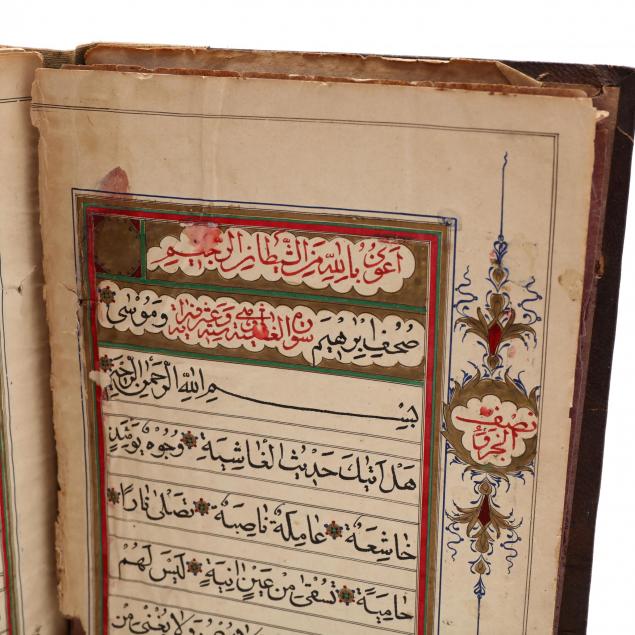 اعوذ بالله من الشيطان الرجيم
صُحُفِ اِبْرٰهِيمَ سورة الغاشية وَمُوسٰى
بِسْمِ اللهِ الرَّحْمٰنِ الرَّحِيمِ
هَلْ اَتٰيكَ حَدِيثُ الْغَاشِيَةِ وُجُوهٌ يَوْمَئِذٍ
خَاشِعَةٌ عَامِلَةٌ نَاصِبَةٌ تَصْلٰى نَارًا
حَامِيَةً تُسْقٰى مِنْ عَيْنٍ اٰنِيَةٍ لَيْسَ لَهُمْ
وَلَا يُغْنِي مِنْ
نصف
الجزؤ